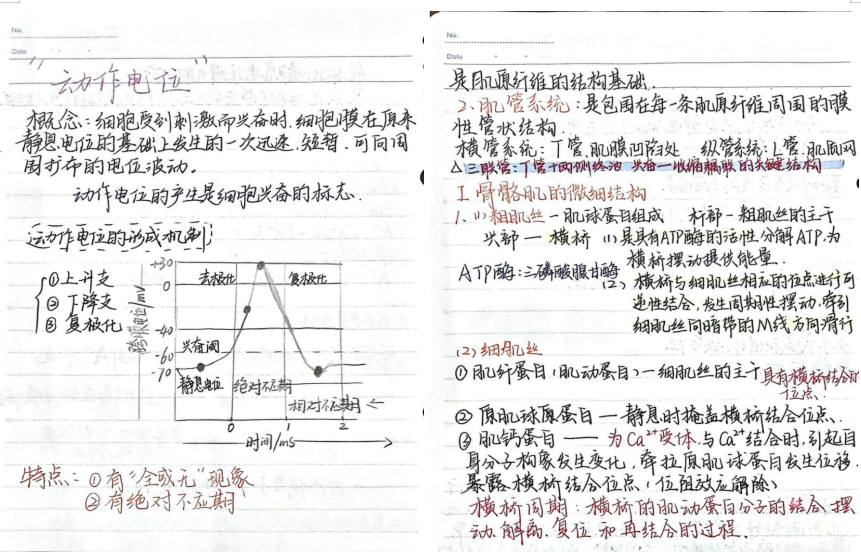 No.
Date
"动作电位"
概念:细胞受到刺激而兴奋时.细胞膜在原来
静息电位的基础上发生的一次迅速.短暂.可向周
围扩布的电位波动.
动作电位的产生是细胞兴奋的标志.
动作电位的形成机制:
①上升支
②下降支
③复极化
跨膜电位/mv
+30
0
-40
-60
-70
去极化
复极化
兴奋阈
静息电位
绝对不应期
相对不应期
0
1
2
时间/ms
特点:①有“全或无”现象
②有绝对不应期
No.
Date
是肌原纤维的结构基础.
2.肌管系统:是包围在每一条肌原纤维周围的膜
性管状结构.
横管系统:T管.肌膜凹陷处 纵管系统:L管.肌质网
△三联管:T管+两侧终池 兴奋—收缩耦联的关键结构
I 骨骼肌的微细结构
1.(1)粗肌丝-肌球蛋白组成 杆部-粗肌丝的主干
头部—横桥 (1)是具有ATP酶的活性分解ATP,为
横桥摆动提供能量.
ATP酶:三磷酸腺甘酶
(2)横桥与细肌丝相应的位点进行可
逆性结合,发生周期性摆动,牵引
细肌丝向暗带的M线方向滑行
(2)细肌丝
①肌纤蛋白(肌动蛋白)-细肌丝的主干 具有横桥结合的
位点.
②原肌球原蛋白—静息时掩盖横桥结合位点.
③肌钙蛋白——为Ca²⁺受体,与Ca²⁺结合时,引起自
身分子构象发生变化,牵拉原肌球蛋白发生位移.
暴露横桥结合位点(位阻效应解除)
横桥周期:横桥的肌动蛋白分子的结合.摆
动.解离.复位和再结合的过程.